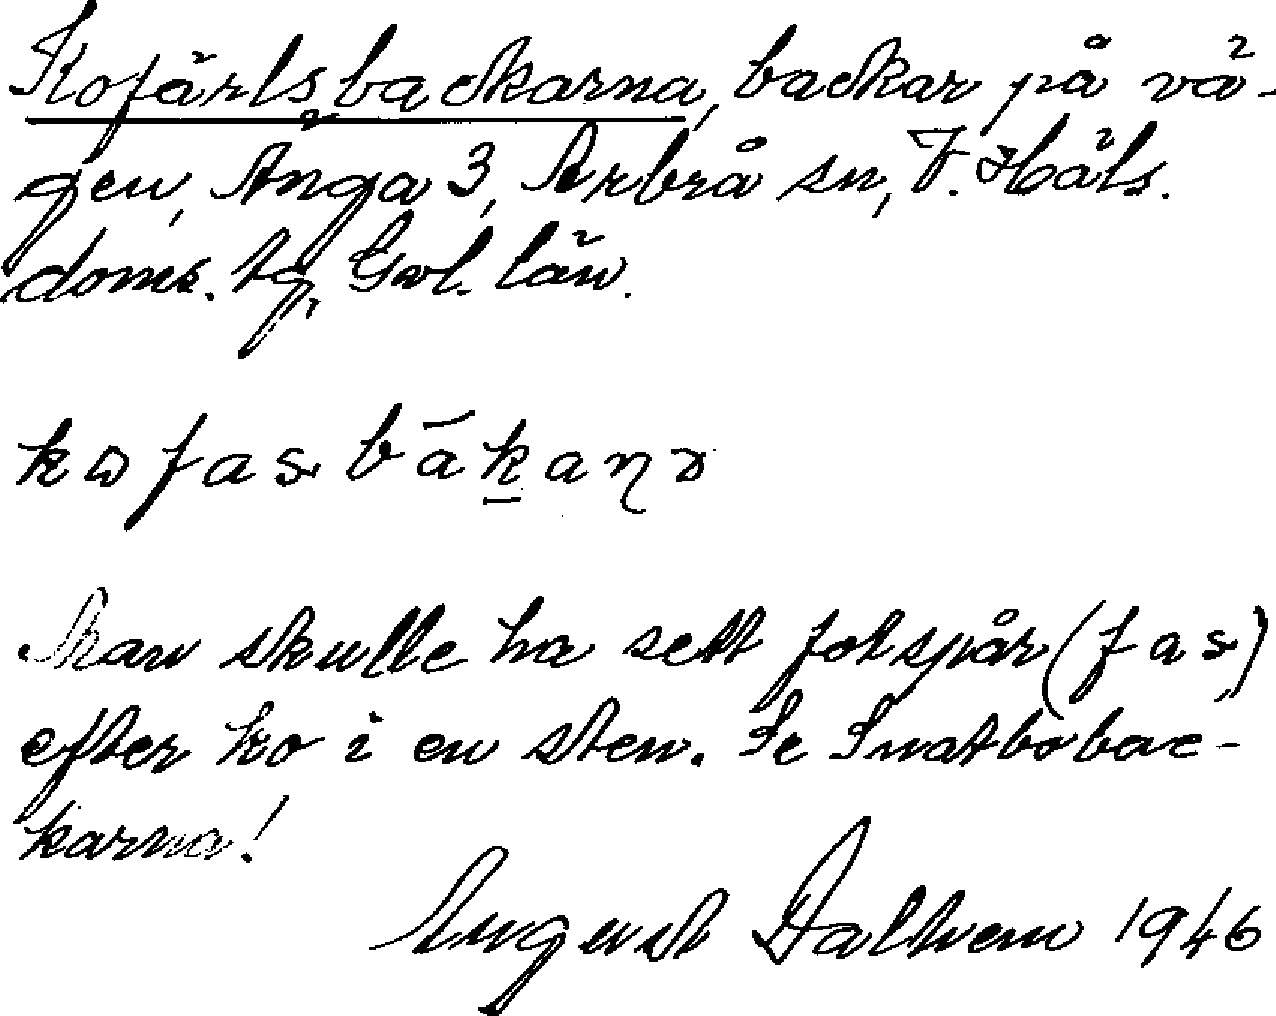 Kofärlsbackarna, backar på vä-
gen, Änga 3, Arbrå sn, V. Häls.
doms. tg, Gvl. län.
kɷfas båkaṇɤ
Man skulle ha sett fotspår (fas)
efter ko i en sten. Se Snatbobac-
karna!
August Dalhem 1946